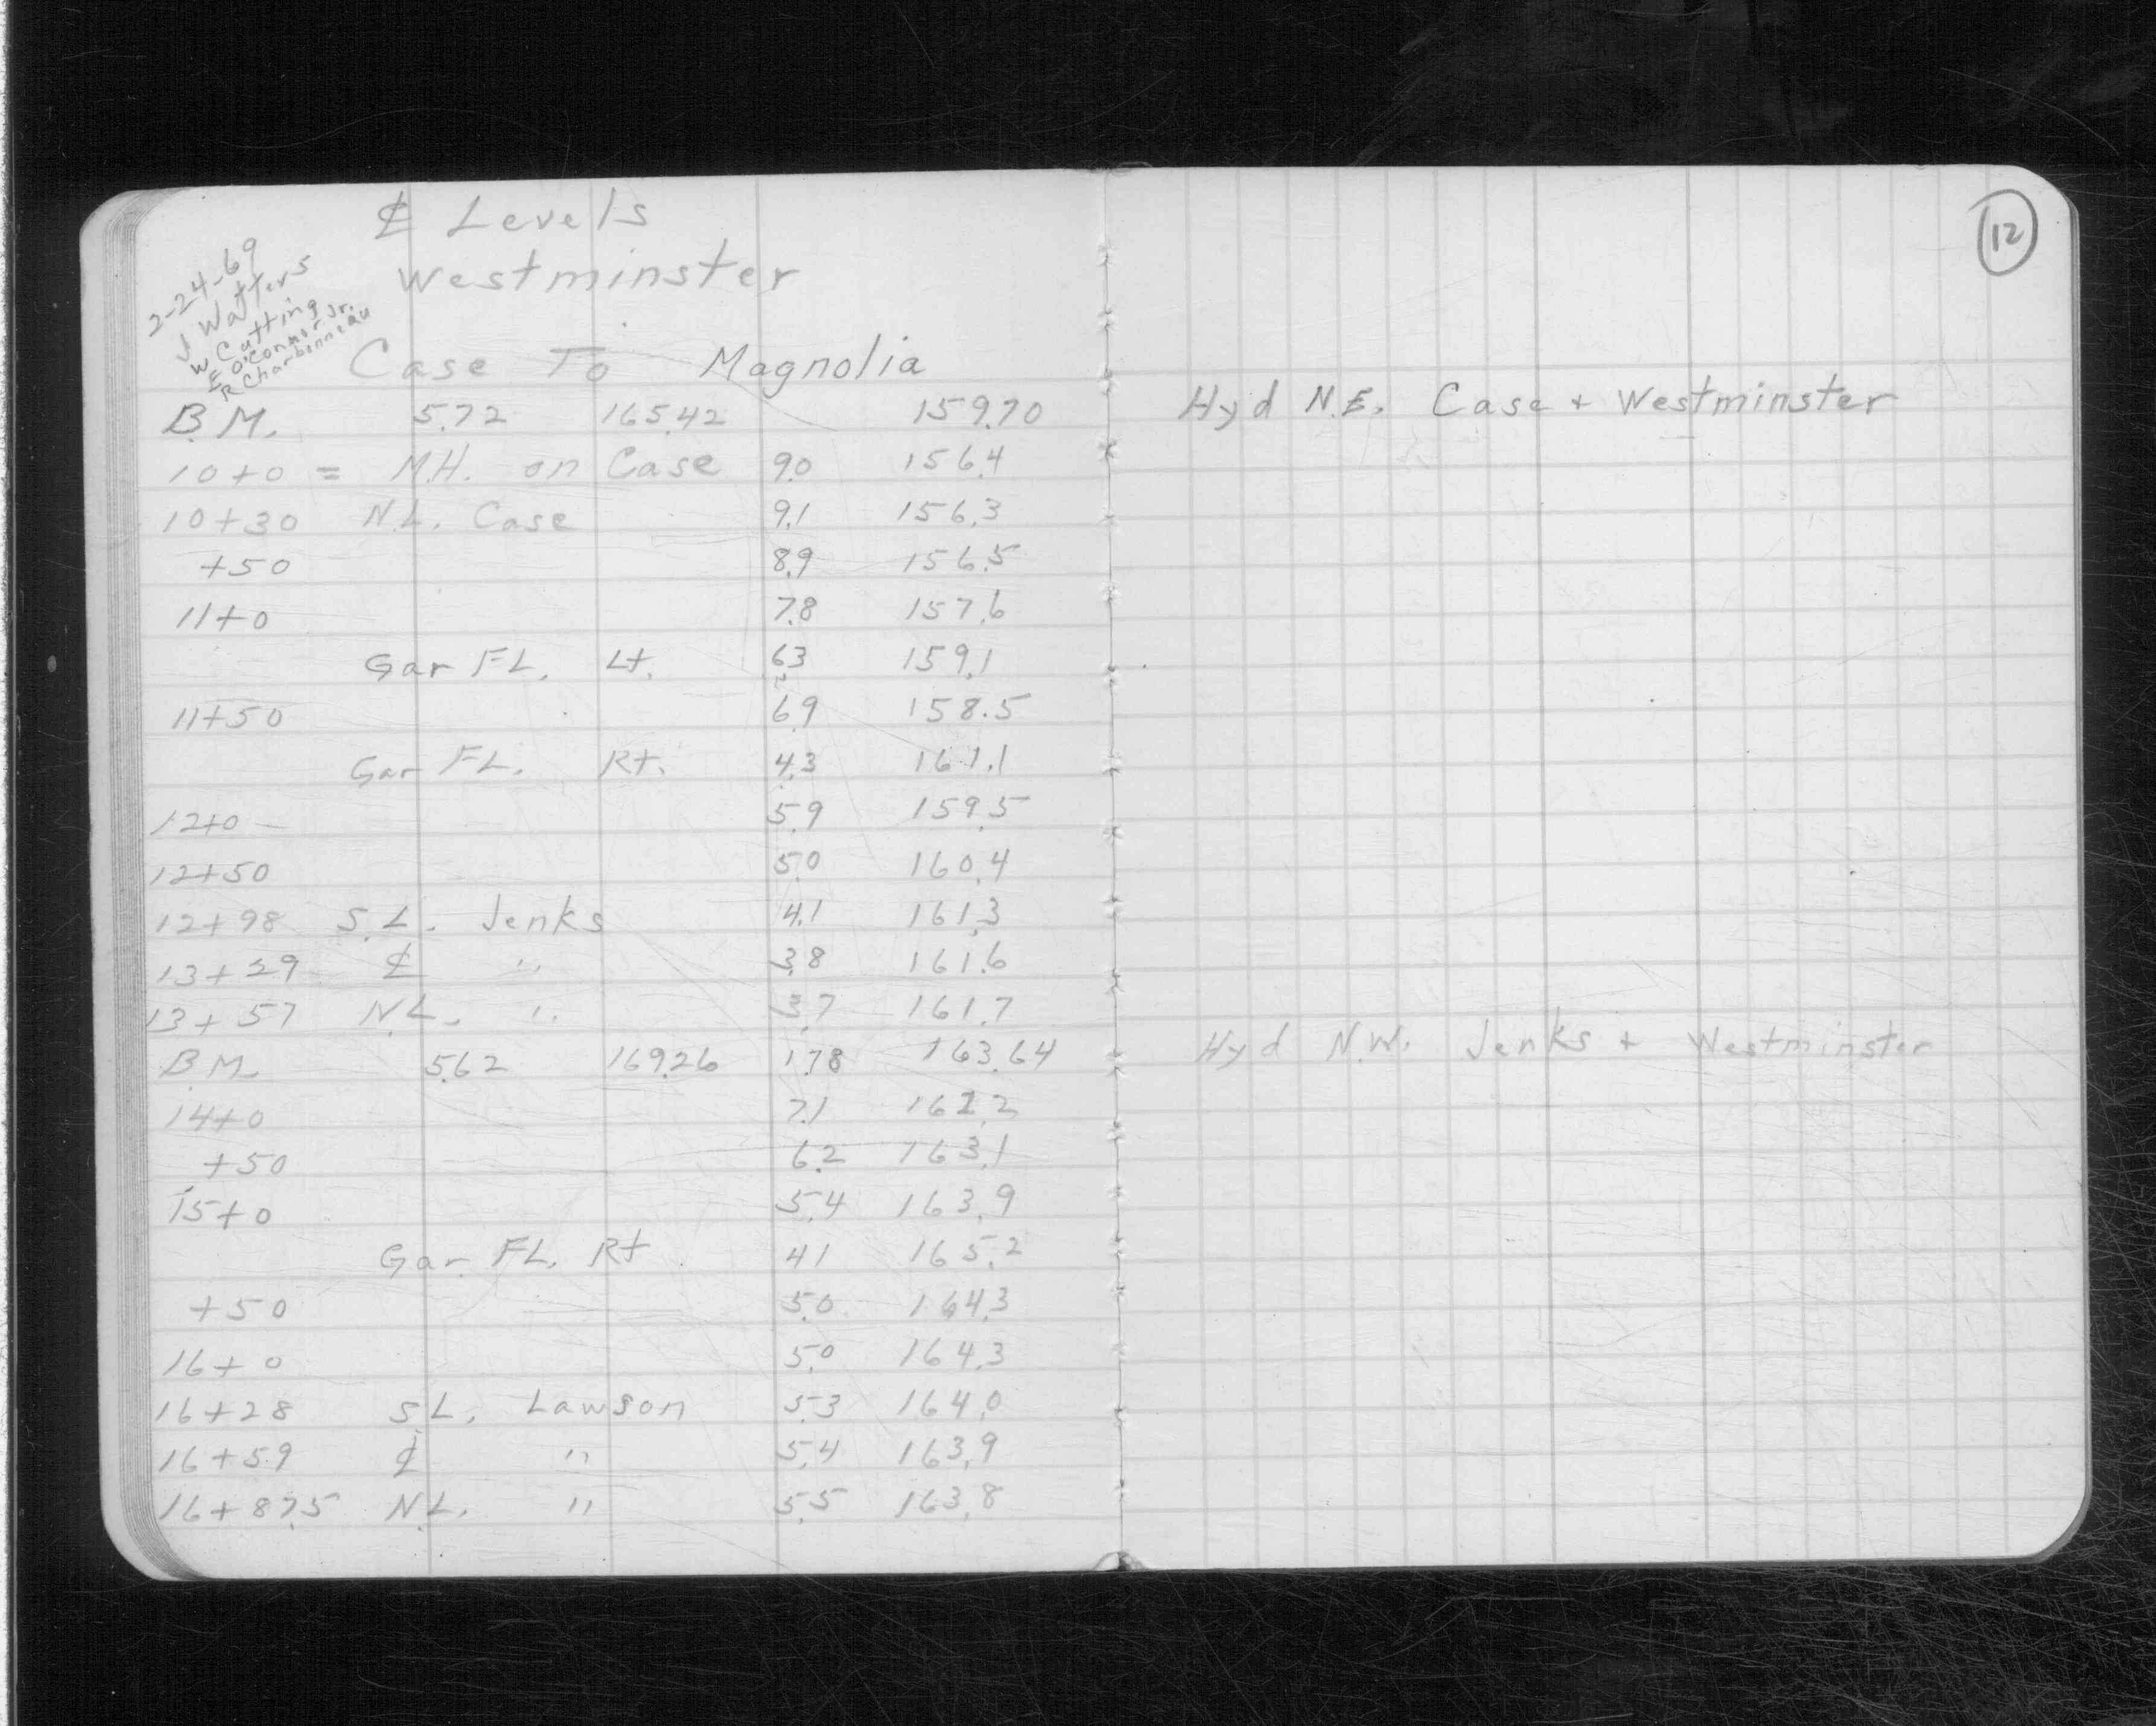 ₵ Levels
Westminster
2-24-69
J Watters
W Cutting
E O'Connor Jr.
R Charbonneau
Case To Magnolia
B.M. 5.72 165.42 159.70
10+0 = M.H. on Case 9.0 156.4
10+30 N.L. Case 9.1 156.3
+50 8.9 156.5
11+0 7.8 157.6
Gar FL. Lt. 6.3 159.1
11+50 6.9 158.5
Gar FL. Rt. 4.3 161.1
12+0 5.9 159.5
12+50 5.0 160.4
12+98 S.L. Jenks 4.1 161.3
13+29 ₵ " 3.8 161.6
13+57 N.L. " 3.7 161.7
B.M. 5.62 169.26 1.78 163.64
14+0 7.1 162.2
+50 6.2 163.1
15+0 5.4 163.9
Gar. FL. Rt 4.1 165.2
+50 5.0 164.3
16+0 5.0 164.3
16+28 S.L. Lawson 5.3 164.0
16+59 ₵ " 5.4 163.9
16+87.5 N.L. " 5.5 163.8
12
Hyd N.E. Case + Westminster
Hyd N.W. Jenks + Westminster